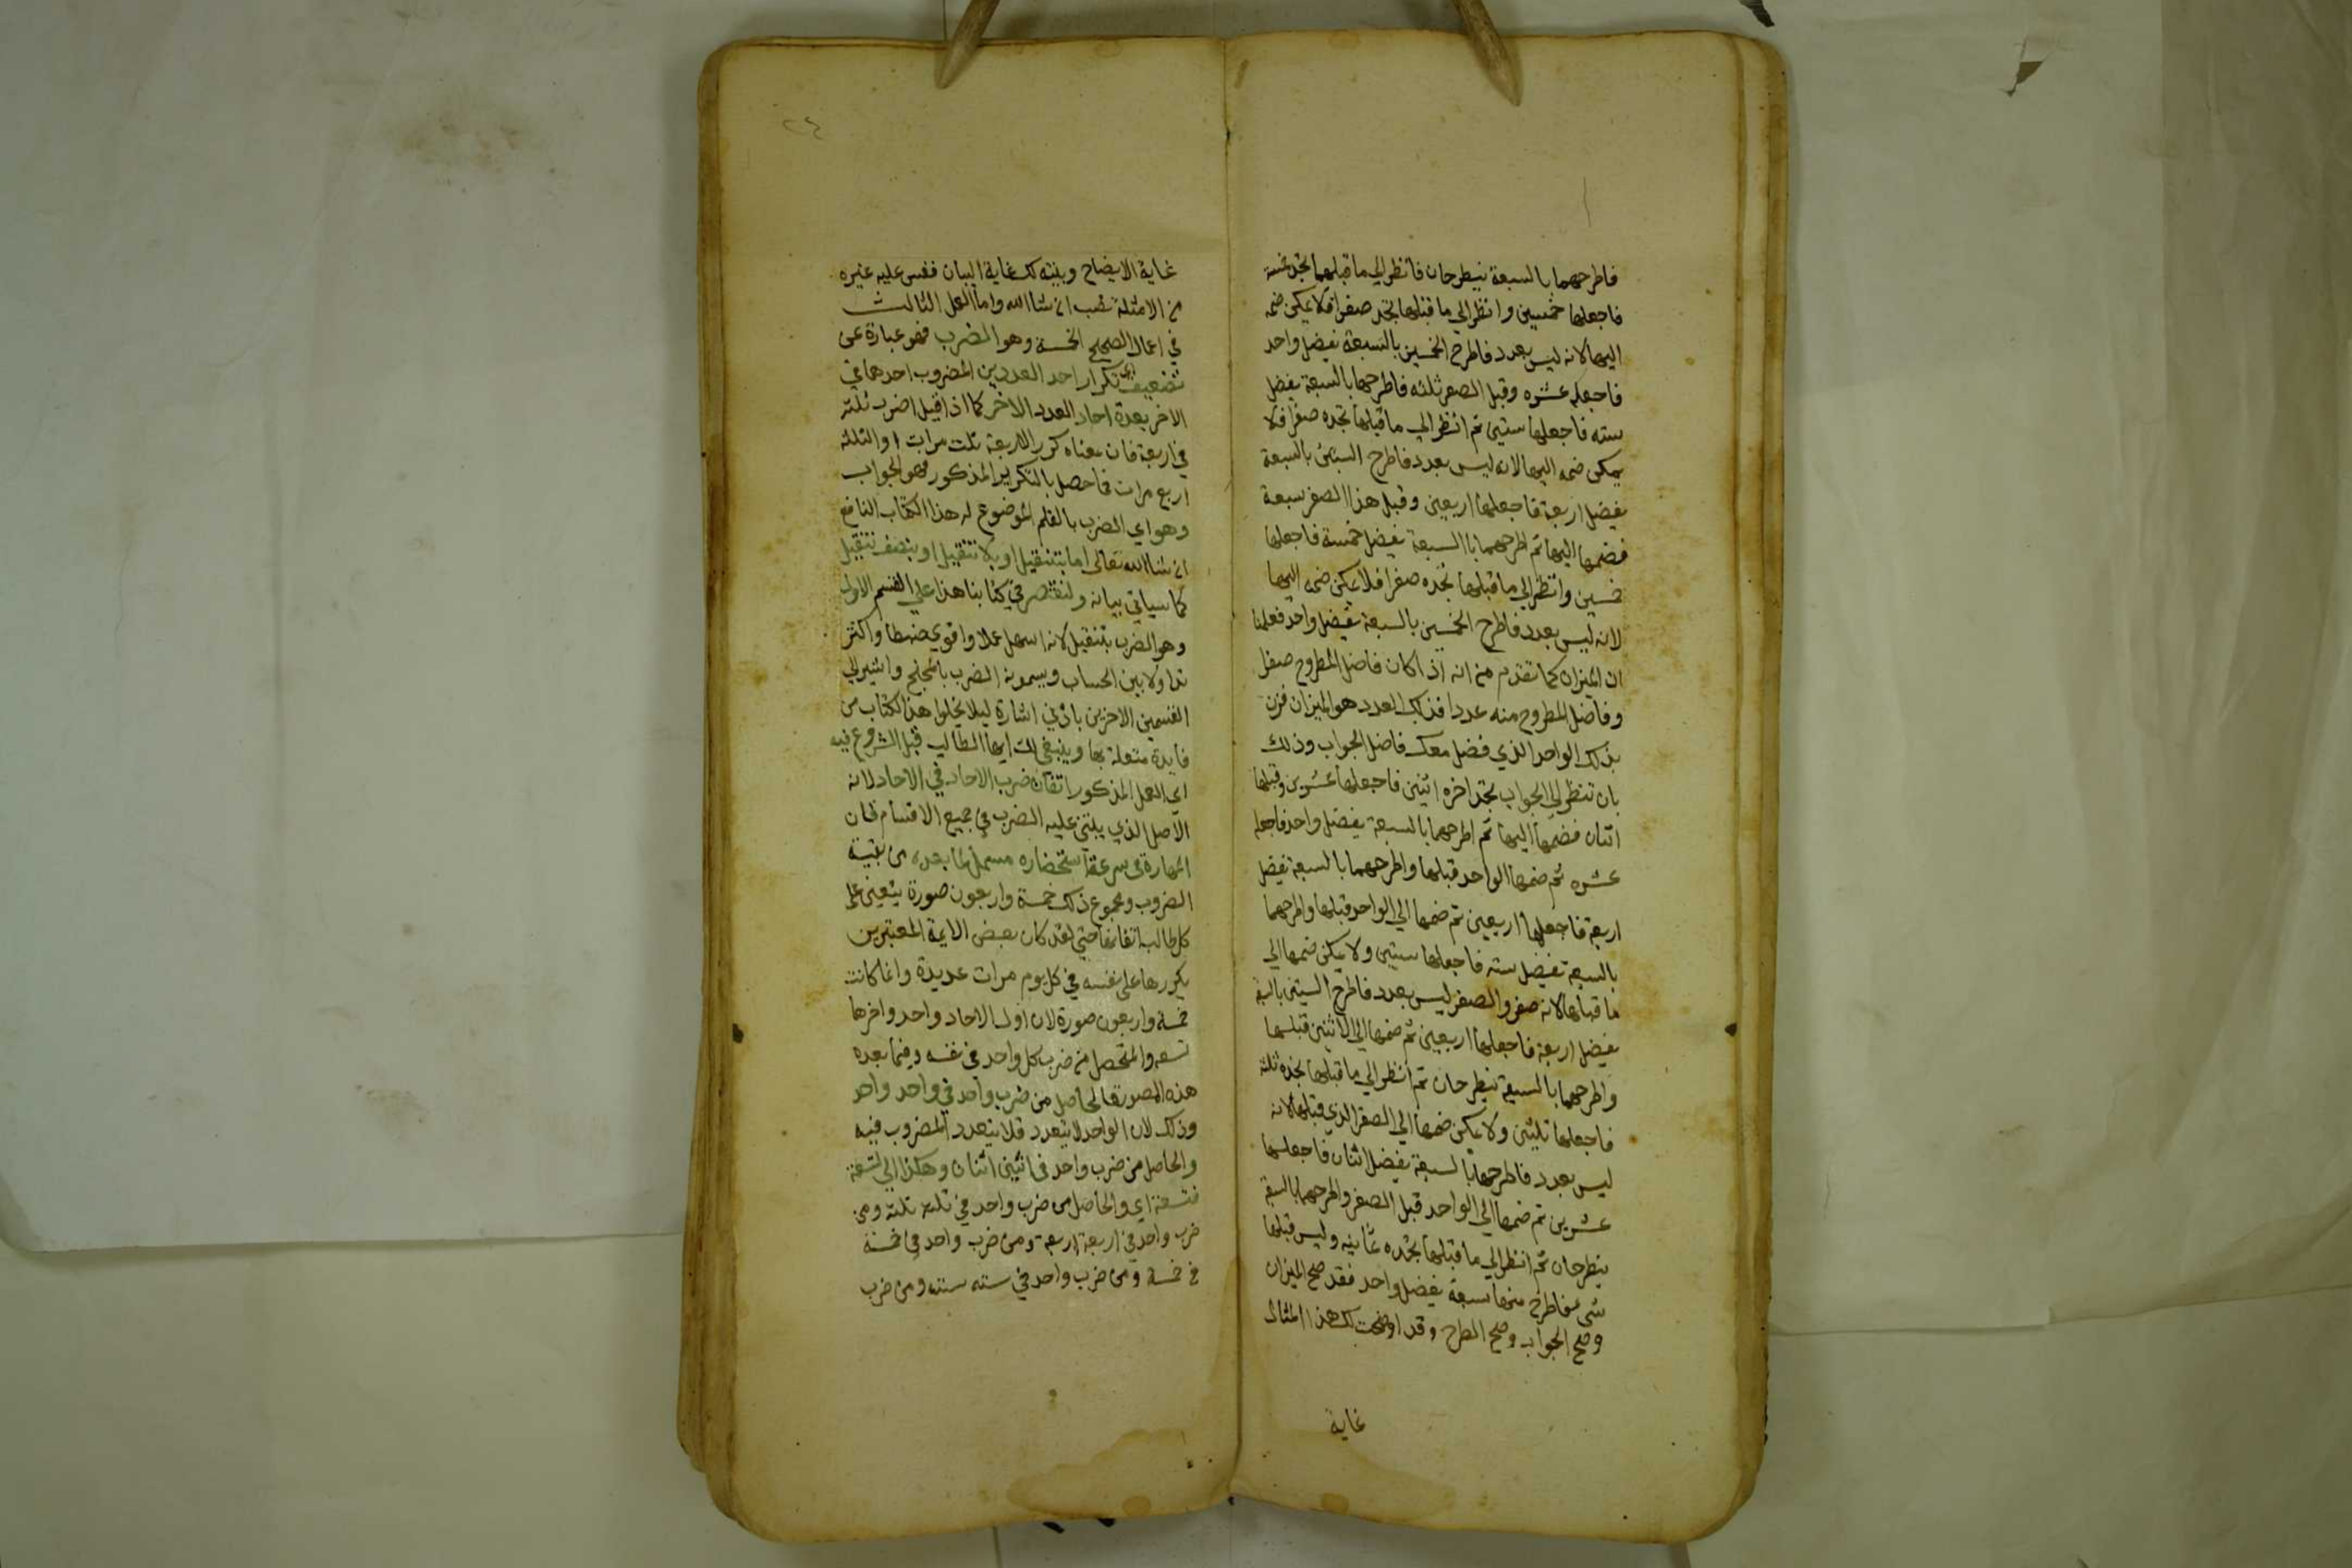 فاطرحهما بالسبعة ينطرحان فانظر الي ما قبلهما تجد خمسة
فاجعلها خمسين وانظر الي ما قبلها تجد صفرا فلا يمكن ضمه
اليها لانه ليس بعدد فاطرح الخمسين بالسبعة يفضل واحد
فاجعله عشره وقبل الصفر ثلثه فاطرحها بالسبعة يفضل
سته فاجعلها ستين ثم انظر الي ما قبلها تجده صفرا فلا
يمكن ضمه اليها لانه ليس بعدد فاطرح الستين بالسبعة
يفضل اربعة فاجعلها اربعين وقبل هذا الصفر سبعة
فضمها اليها ثم اطرحهما بالسبعة يفضل خمسة فاجعلها
خمسين وانظر الي ما قبلها تجده صفرا فلا يمكن ضمه اليها
لانه ليس بعدد فاطرح الخمسين بالسبعة يفضل واحد فعلمنا
ان الميزان كما تقدم من انه اذا كان فاضل المطروح صفرا
وفاضل المطروح منه عددا فذلك العدد هو الميزان فزن
بذلك الواحد الذي فضل معك فاضل الجواب وذلك
بان تنظر الي الجواب تجد اخره اثنين فاجعلها عشرين وقبلها
اثنان فضمها اليها ثم اطرحهما بالسبعة يفضل واحد فاجعله
عشره ثم ضمها الواحد قبلها واطرحهما بالسبعة يفضل
اربعة فاجعلها اربعين ثم ضمها الي الواحد قبلها واطرحهما
بالسبعة يفضل سته فاجعلها ستين ولا يمكن ضمها الي
ما قبلها لانه صفر والصفر ليس بعدد فاطرح الستين بالسبعة
يفضل اربعة فاجعلها اربعين ثم ضمها الي الاثنين قبلها
واطرحهما بالسبعة ينطرحان ثم انظر الي ما قبلها تجده ثلثة
فاجعلها ثلثين ولا يمكن ضمها الي الصفر الذي قبلها لانه
ليس بعدد فاطرحها بالسبعة يفضل اثنان فاجعلها
عشرين ثم ضمها الي الواحد قبل الصفر واطرحهما بالسبعة
ينطرحان ثم انظر الي ما قبلها تجده ثمانيه وليس قبلها
شي فاطرح منها سبعة يفضل واحد فقد صح الميزان
وصح الجواب وصح الطرح وقد اوضحت لك هذا المثال
غاية
٢٤
غاية الايضاح وبينته لك غاية البيان فقس عليه غيره
من الامثلة تصب ان شا الله واما العمل الثالث
في اعمال الصحيح الخمسة وهو الضرب فهو عبارة عن
تضعيف اي تكرار احد العددين المضروب احدهما في
الاخر بعدة احاد العدد الاخر كما اذا قيل اضرب ثلثه
في اربعة فان معناه كرر الاربعة ثلث مرات او الثلثه
اربع مرات فما حصل بالتكرير المذكور فهو الجواب
وهو اي الضرب بالقلم الموضوع له هذا الكتاب النافع
ان شا الله تعالى اما بتنقيل او بلا تنقيل او بنصف تنقيل
كما سياتي بيانه ولنقتصر في كتابنا هذا علي القسم الاول
وهو الضرب بتنقيل لانه اسهل عملا واقوي ضبطا واكثر
تداولا بين الحساب ويسمونه الضرب بالمجنح واشير الي
القسمين الاخرين بادني اشارة ليلا يخلوا هذا الكتاب من
فايدة متعلقة بها وينبغي لك ايها الطالب قبل الشروع فيه
اي العمل المذكور اتقان ضرب الاحاد في الاحاد لانه
الاصل الذي يبتني عليه الضرب في جميع الاقسام فان
المهارة في سرعة استحضاره مسهل لما بعده من بقية
الضروب ومجموع ذلك خمسة واربعون صورة يتعين على
كل طالب اتقانها حتي لقد كان بعض الايمة المعتبرين
يكررها على نفسه في كل يوم مرات عديدة وانما كانت
خمسة واربعون صورة لان اول الاحاد واحد واخرها
تسعه والمتحصل من ضرب كل واحد في نفسه وفيما بعده
هذه الصورة فالحاصل من ضرب واحد في واحد واحد
وذلك لان الواحد لا يتعدد فلا يتعدد المضروب فيه
والحاصل من ضرب واحد في اثنين اثنان وهكذا الي تسعة
فتسعة اي والحاصل من ضرب واحد في ثلثه ثلثه ومن
ضرب واحد في اربعة اربعة ومن ضرب واحد في خمسة
خمسة ومن ضرب واحد في سته سته ومن ضرب